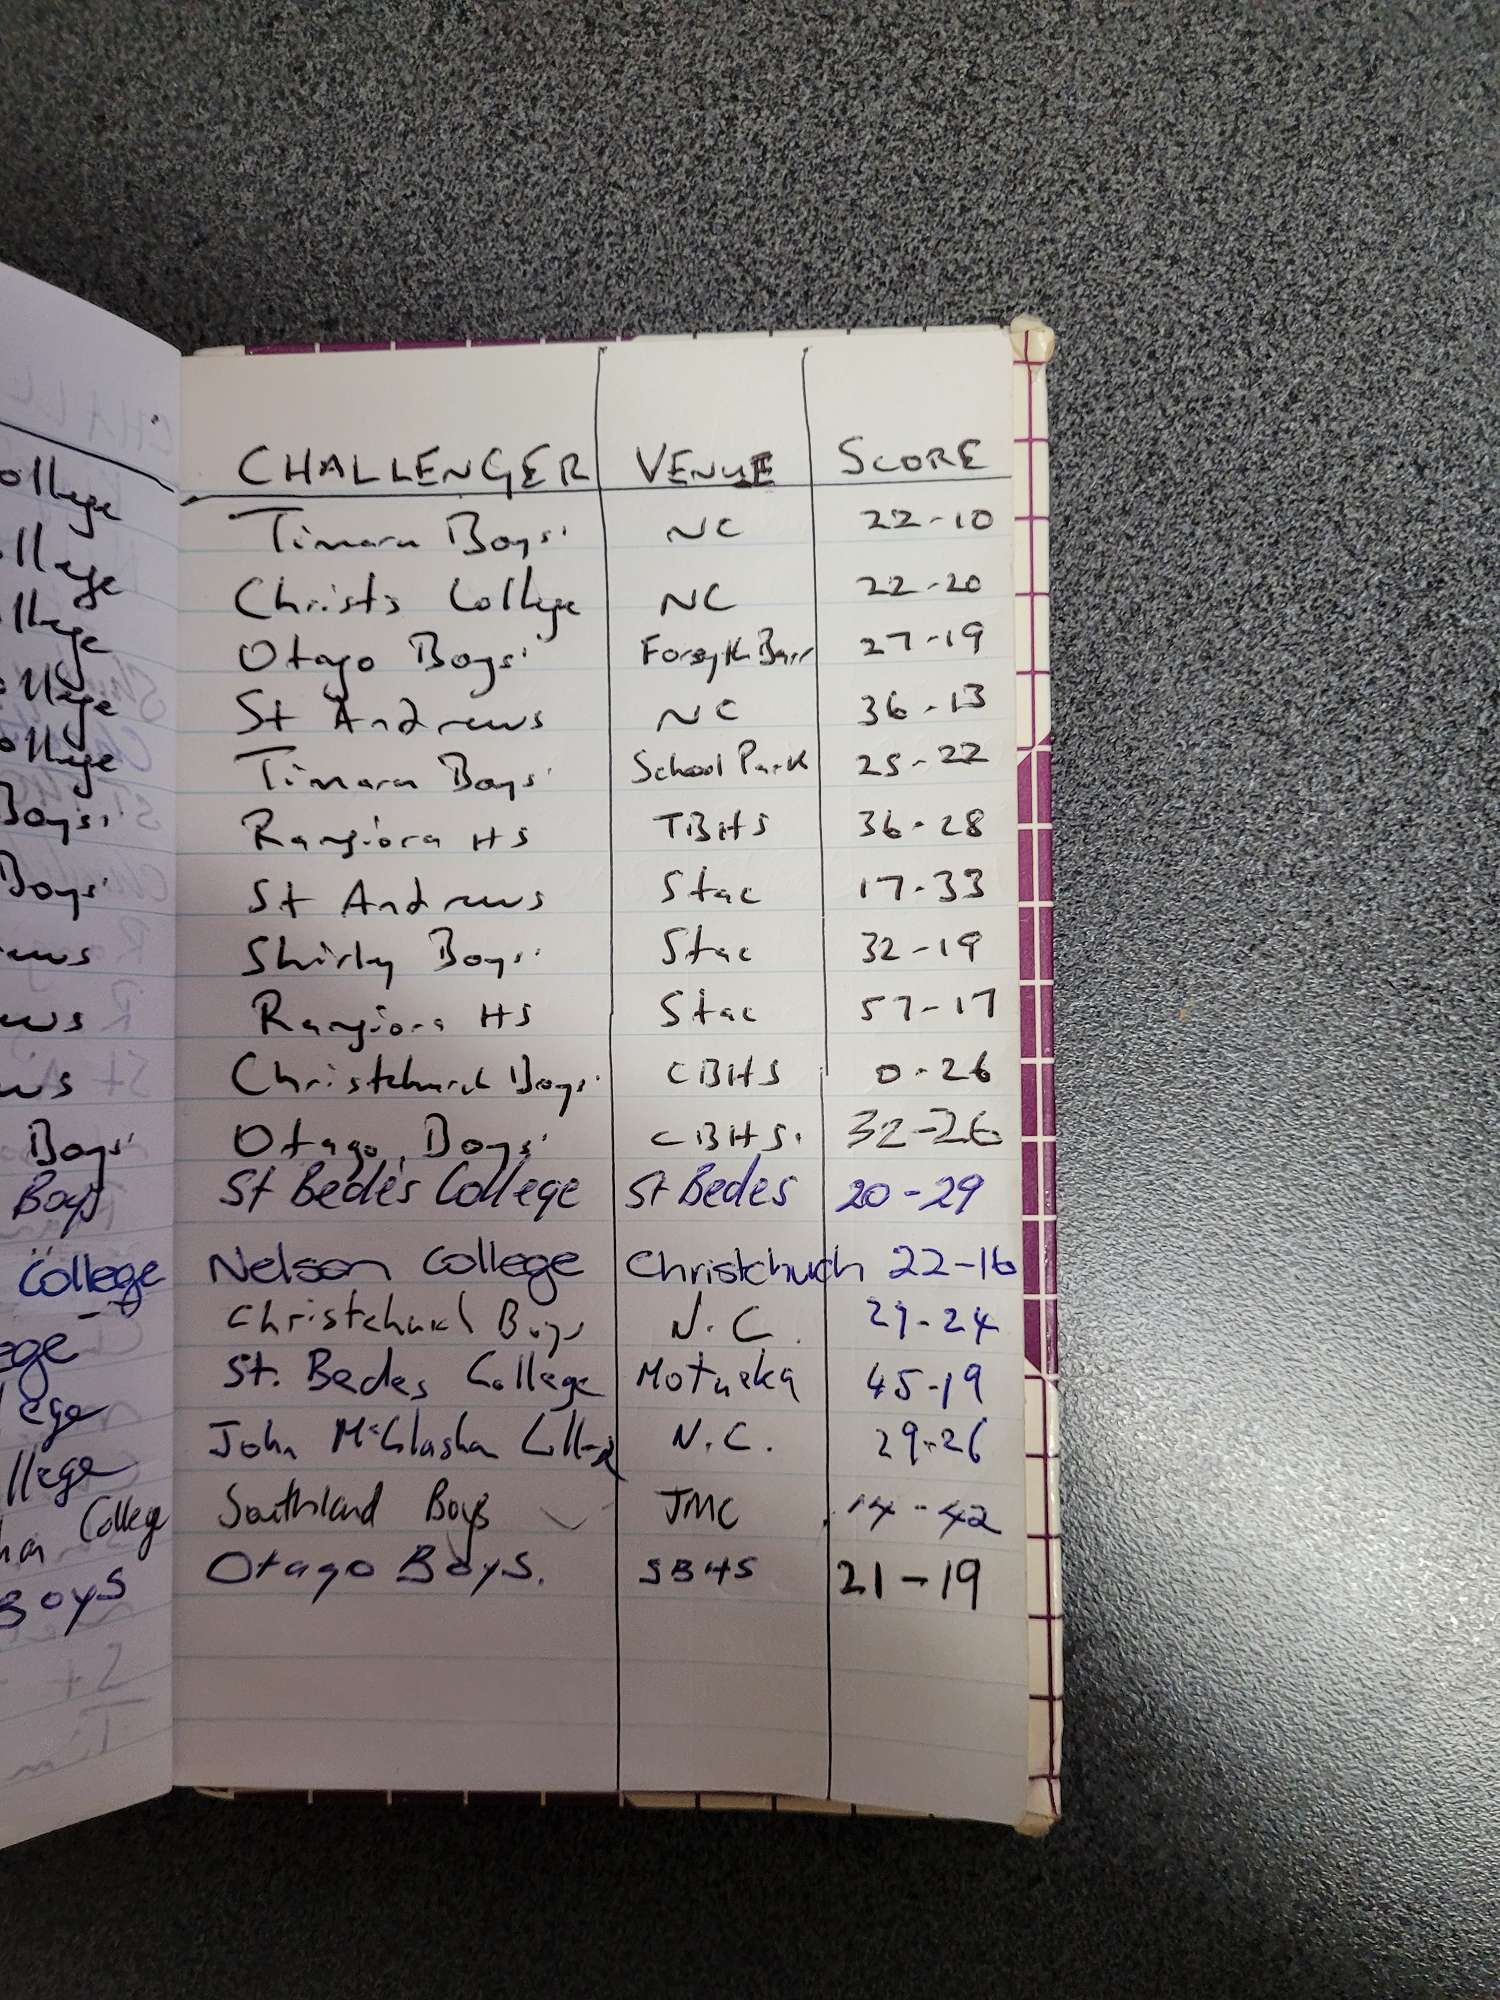 ollege
ollege
ollege
ollege
ollege
Boys'
Boys'
ews
ews
ws
Boys'
Boys
College
ege
lege
llege
College
Boys
CHALLENGER VENUE SCORE
Timaru Boys' NC 22-10
Christs College NC 22-20
Otago Boys' Forsyth Barr 27-19
St Andrews NC 36-13
Timaru Boys' School Park 25-22
Rangiora HS TBHS 36-28
St Andrews Stac 17-33
Shirly Boys' Stac 32-19
Rangiora HS Stac 57-17
Christchurch Boys' CBHS 0-26
Otago Boys' CBHS. 32-26
St Bede's College St Bedes 20-29
Nelson College Christchuch 22-16
Christchurch Boys N.C. 24
St. Bedes College Motueka 45-19
John McGlashan College N.C. 29-26
Southland Boys JMC 14-42
Otago Boys. SBHS 21-19